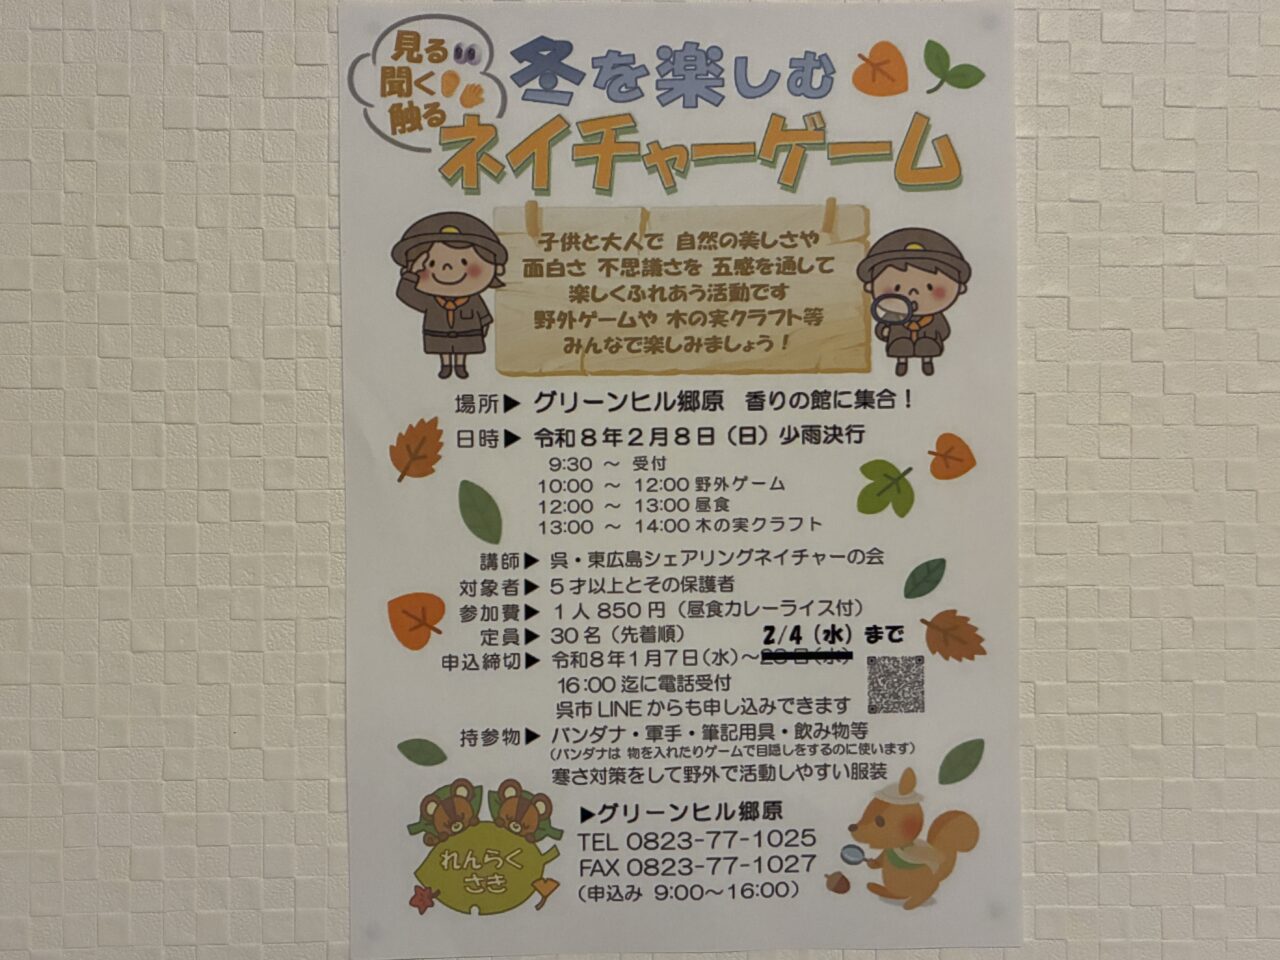 見る
聞く
触る
冬を楽しむ
ネイチャーゲーム
子供と大人で 自然の美しさや
面白さ 不思議さを 五感を通して
楽しくふれあう活動です
野外ゲームや 木の実クラフト等
みんなで楽しみましょう！
場所▶ グリーンヒル郷原 香りの館に集合！
日時▶ 令和８年２月８日（日）少雨決行
9:30 ～ 受付
10:00 ～ 12:00 野外ゲーム
12:00 ～ 13:00 昼食
13:00 ～ 14:00 木の実クラフト
講師▶ 呉・東広島シェアリングネイチャーの会
対象者▶ ５才以上とその保護者
参加費▶ １人 850 円（昼食カレーライス付）
定員▶ 30 名（先着順）
2/4（水）まで
申込締切▶ 令和８年１月７日（水）～
16:00 迄に電話受付
呉市 LINE からも申し込みできます
持参物▶ バンダナ・軍手・筆記用具・飲み物等
（バンダナは 物を入れたりゲームで目隠しをするのに使います）
寒さ対策をして野外で活動しやすい服装
れんらく
さき
▶グリーンヒル郷原
TEL 0823-77-1025
FAX 0823-77-1027
（申込み 9:00～16:00）